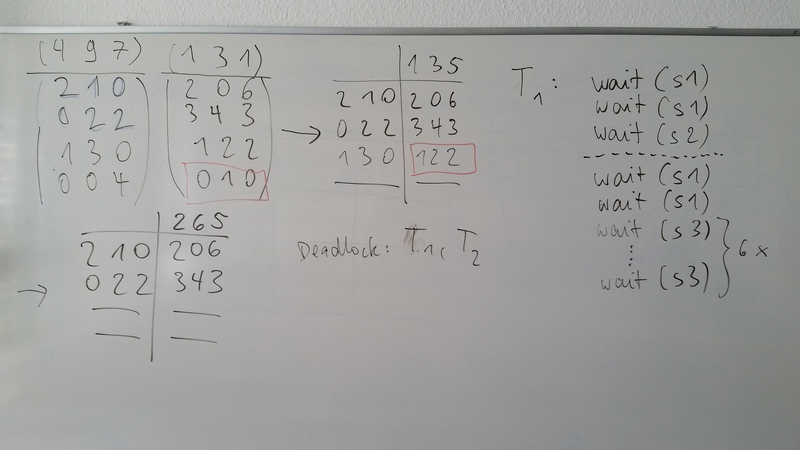 (4 9 7) (1 3 1)
2 1 0 2 0 6
0 2 2 3 4 3
1 3 0 1 2 2
0 0 4 0 1 0
→
1 3 5
2 1 0 2 0 6
0 2 2 3 4 3
1 3 0 1 2 2
→
2 6 5
2 1 0 2 0 6
0 2 2 3 4 3
Deadlock: T1, T2
T1: wait (s1)
wait (s1)
wait (s2)
wait (s1)
wait (s1)
wait (s3)
⋮
wait (s3) } 6 x